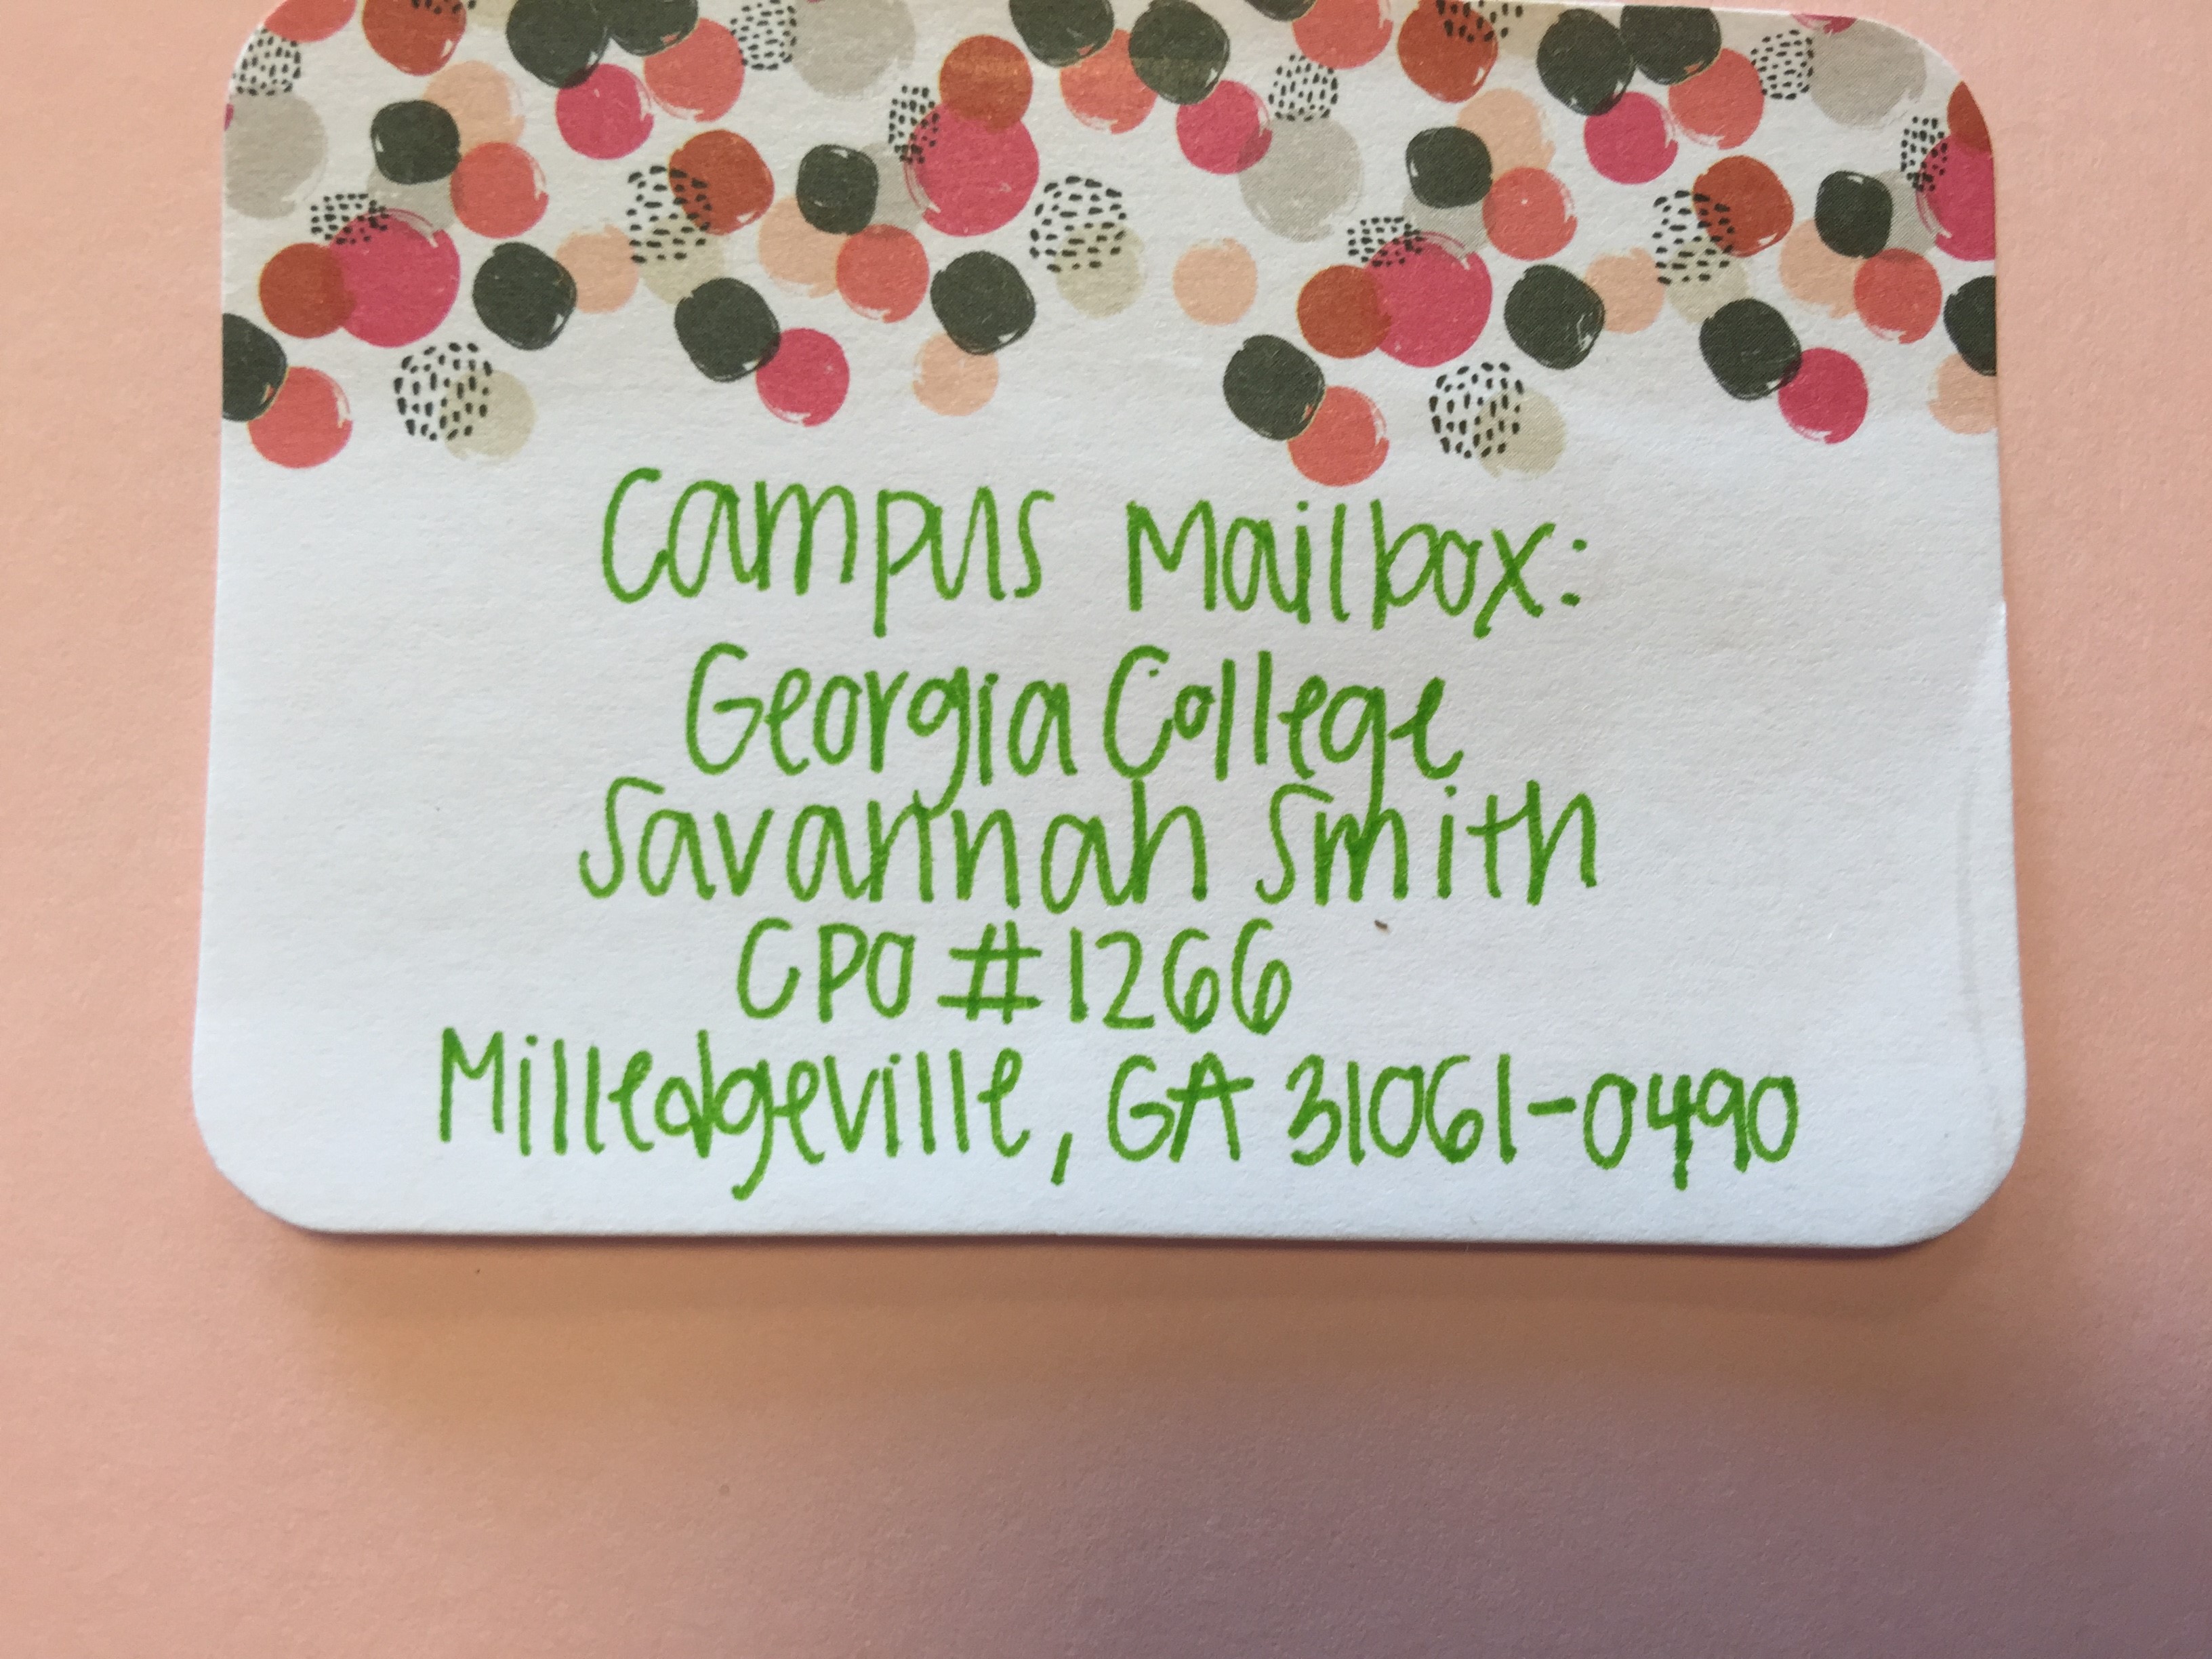 Campus Mailbox:
Georgia College
Savannah Smith
CPO #1266
Milledgeville, GA 31061-0490